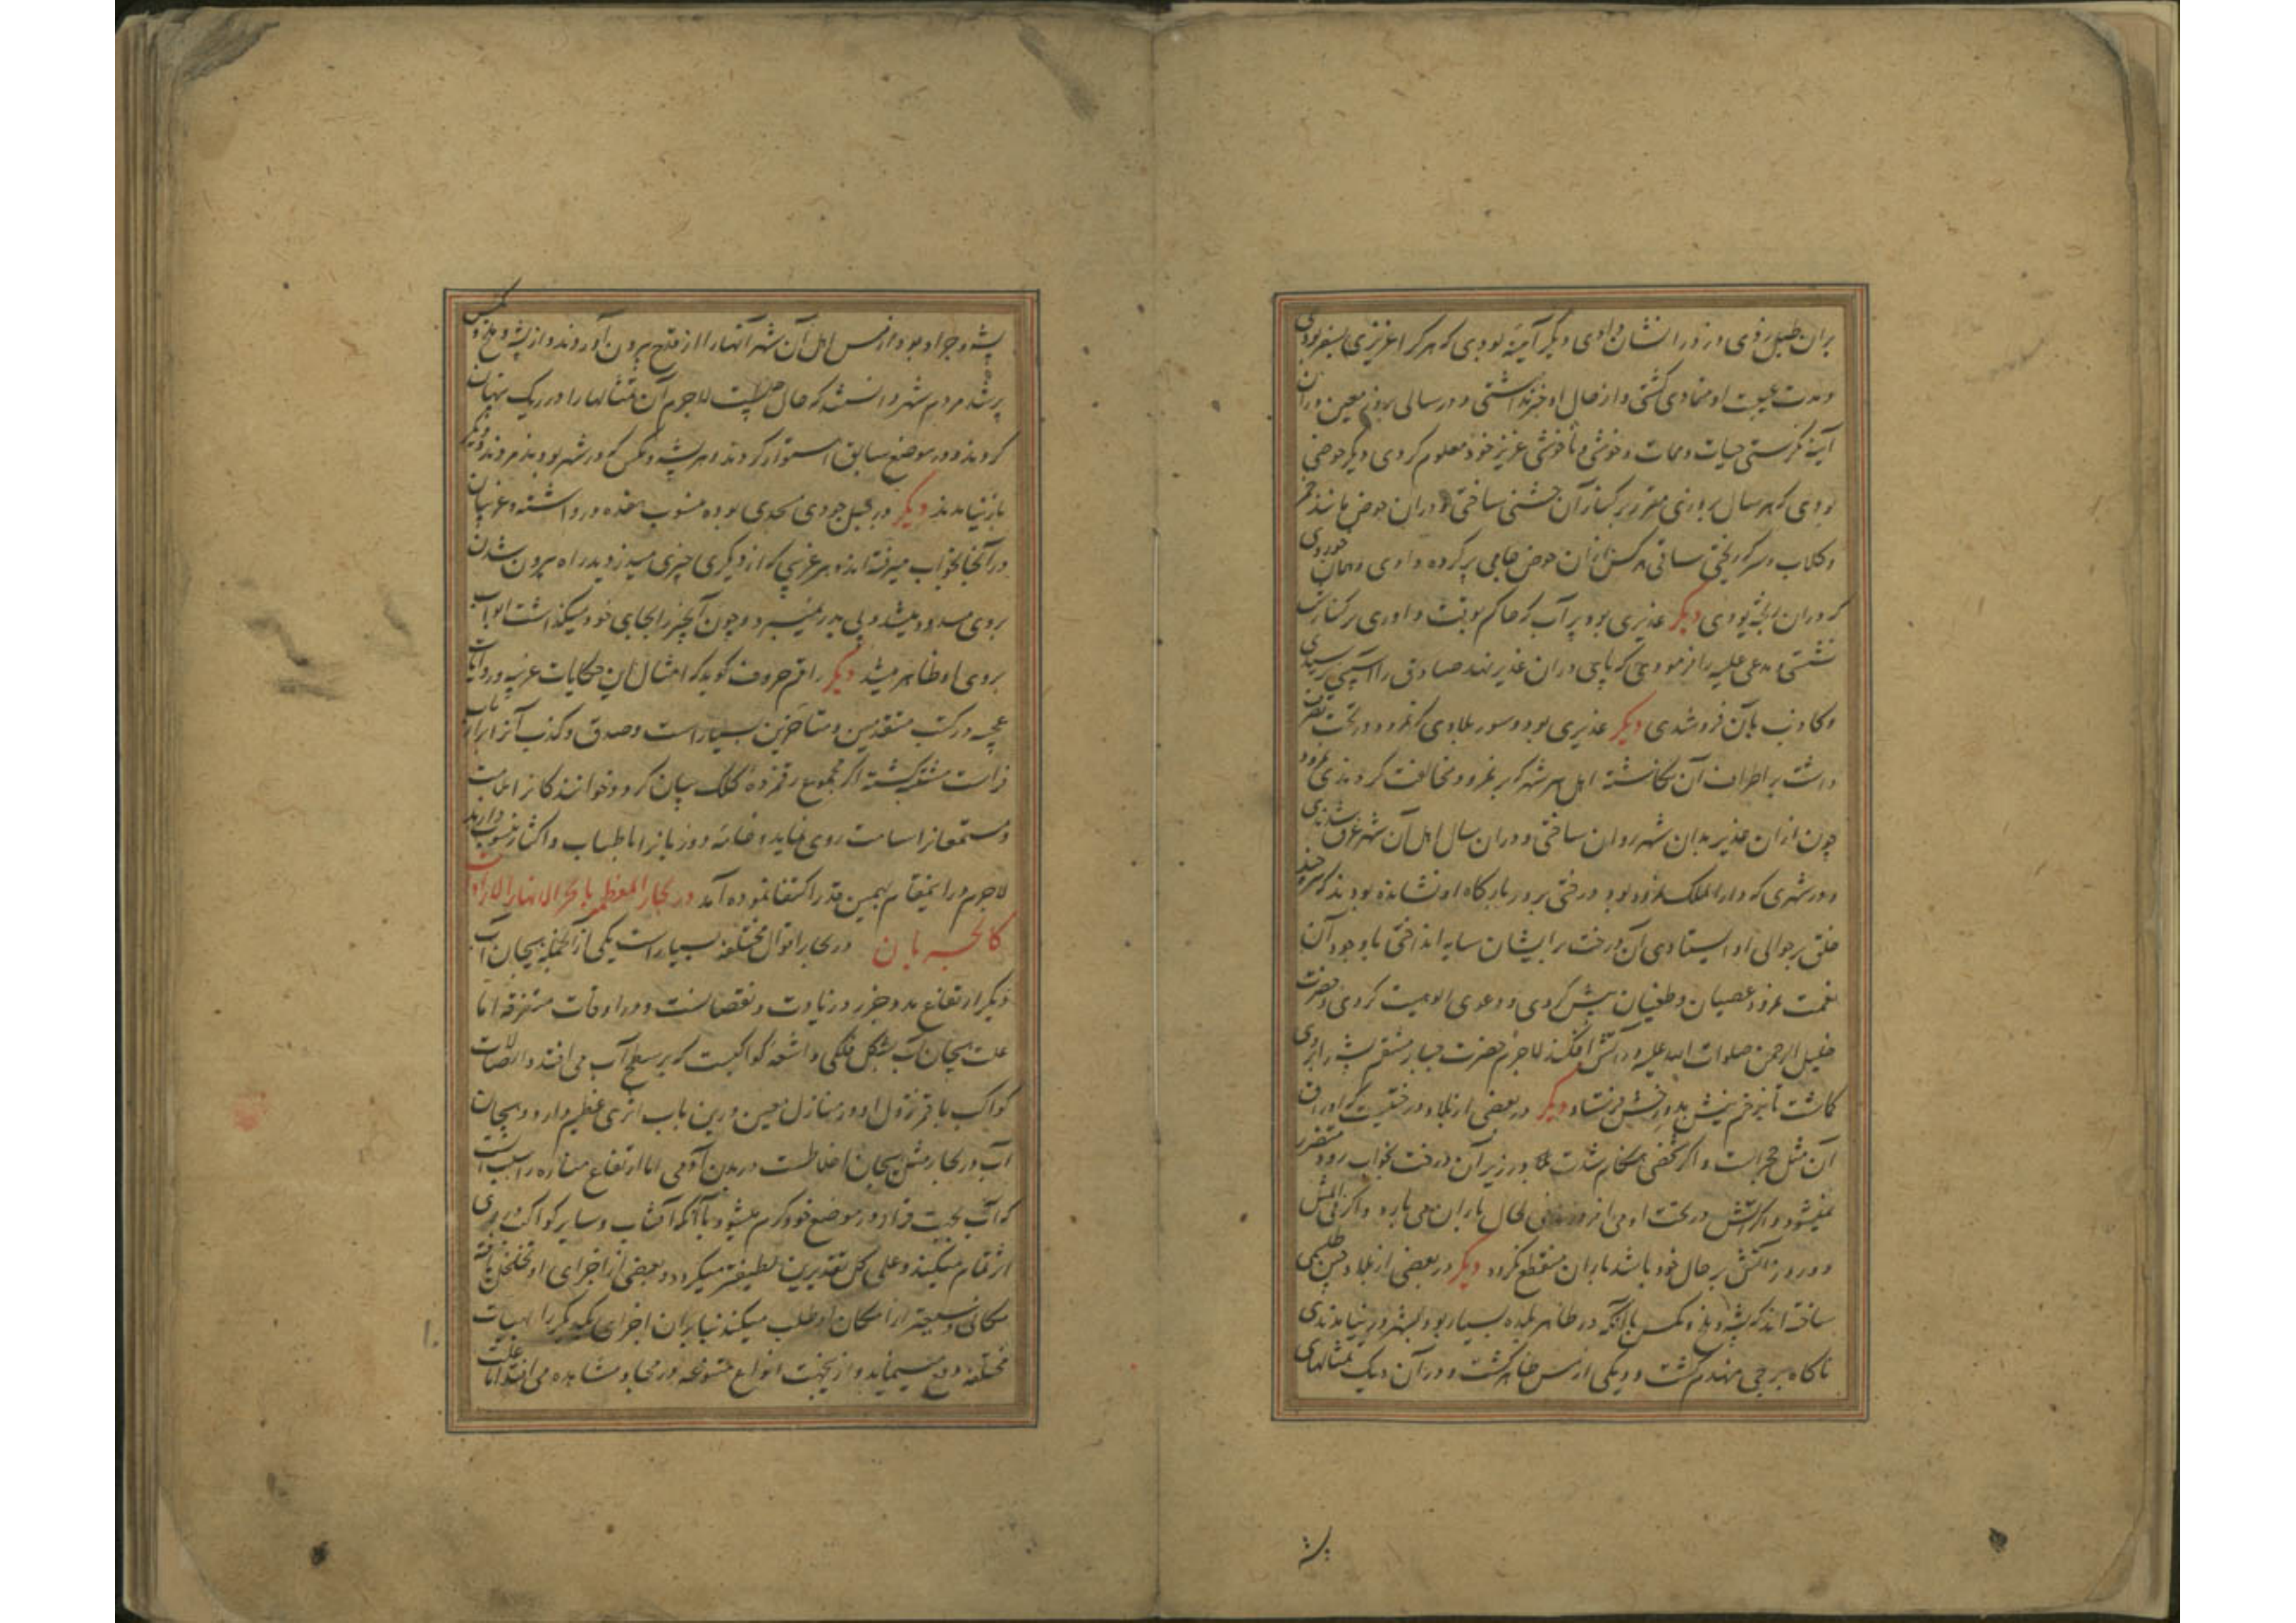 بران طبل زدی دزد را نشان دادی دیگر آینهٔ بودی که هر کرا عزیزی بسفر بودی
و مدت غیبت او متمادی کشتی و از حال او خبر نداشتی در سالی بروز معین دران
آینه نکرستی حیات و ممات و خوشی و ناخوشی عزیز خود معلوم کردی دیکر حوضی
بودی که هر سال بروزی مقرر بر کنار آن جشنی ساختی و دران حوض مانند خمر
و کلاب و سرکه ریختی ساقی هر کس را ازان حوض جامی پر کرده دادی همان خوردی
که دران ریخته بودی دیکر غدیری بود پر آب که حاکم بوقت داوری بر کنارش
نشستی و مدعی علیه را فرمودی که پای دران غدیر نهد صادق را آسیبی نرسیدی
و کاذب بآن فروشدی دیکر غدیری بود و سور بلادی که نمرود در تحت تصرف
داشت بر اطراف آن نکاشته اهل هر شهر که بر نمرود مخالفت کردندی نمرود
چون ازان غدیر بدان شهر روان ساختی و دران سال اهل آن شهر غرق شدندی
و در شهری که دار الملک نمرود بود درختی بر در بارکاه او نشانده بودند که هر چند
خلق بر حوالی او ایستادی آن درخت برایشان سایه انداختی با وجود آن
نعمت نمرود عصیان و طغیان پیش کردی و دعوی الوهیت کردی و حضرت
خلیل الرحمن صلوات الله علیه در آتش افکند لاجرم حضرت جبار منتقم پشه را بروی
کماشت تا بزخم نیش بدوزخش فرستاد دیکر در بعضی از بلاد درختیست که اوراق
آن مثل حجرالست و اکر شخصی هنکام شدت در زیر آن درخت بخواب رود متضرر
نمیشود و اکر آتش در تحت او می افروزند فی الحال باران می بارد و اکر فی المثل
دو روز آتش بر حال خود باشد باران منقطع نکردد دیکر در بعضی از بلاد چین طلسمی
ساخته اند که پشه و ملخ و مکس با آنکه در ظاهر بلده بسیار بود بشهر در نیامدندی
ناکاه برجی منهدم کشت و دیکی از مس ظاهر کشت و در آن دیک تمثالهای
پشه
پشه و جراد بود از مس اهل آن شهر آنها را از قدح بیرون آوردند و از پشه و ملخ و مکس
پر شد مردم شهر دانستند که حال چیست لاجرم آن تمثالها را در ریک پنهان
کردند و در موضع سابق استوار کردند و هر پشه و مکس که در شهر بودند مردند و دیکر
باز نیامدند دیکر در جبل جودی مسجدی بوده منسوب هفده در داشته و غرنیان
در آنجا بخواب میرفته اند و هر غرنیی که از دیکری چیزی میدزدید راه بیرون شدن
بروی مسدود میشد و پی بدر نمیبرد و چون آنچیز را بجای خود میکذاشت ابواب
بروی او ظاهر میشد دیکر راقم حروف کوید که امثال این حکایات غریبه و روایات
عجیبه در کتب متقدمین و متاخرین بسیار است و صدق و کذب آنرا بر ارباب
فراست مشتبه کشته اکر مجموع رقمزدهٔ کلک بیان کردد خوانندکانرا ملامت
و مستمعانرا سآمت روی نماید و خامه دو زبانرا باطناب و اکثار منسوب دارند
لاجرم درا ینمقام بهمین قدر اکتفا نموده آمد در بحار المعظم با ذکر الانهار
کالحسبان در بحار اقوال مختلفه بسیار است یکی از آنجمله هیجان آب
دیکر ارتفاع مد و جزر در زیادت و نقصانست و در اوقات متفرقه اما
علت هیجان آب شکل فلکی و اشعه کواکبست که بر سطح آب می افتد و اتصالات
کواکب با قمر و نزول او در منازل معین درین باب اثری عظیم دارد و هیجان
آب در بحار مثل هیجان اخلاطست در بدن آدمی اما ارتفاع مناره را سبب آنست
که آب بجهت قرار در موضع خود کرم میشود با آنکه آفتاب و سایر کواکب در وی
اثر تمام میکند و علی کل تقدیرین لطیفتر میکردد و بعضی از اجزای او تخلخل یافته
مکانی وسیعتر از امکان او طلب میکند بنابران اجزای یکدیکر را بهیات
مختلفه دفع مینماید و از اینجهت انواع متنوعه در مجاری مشاهده می افتد اما علت